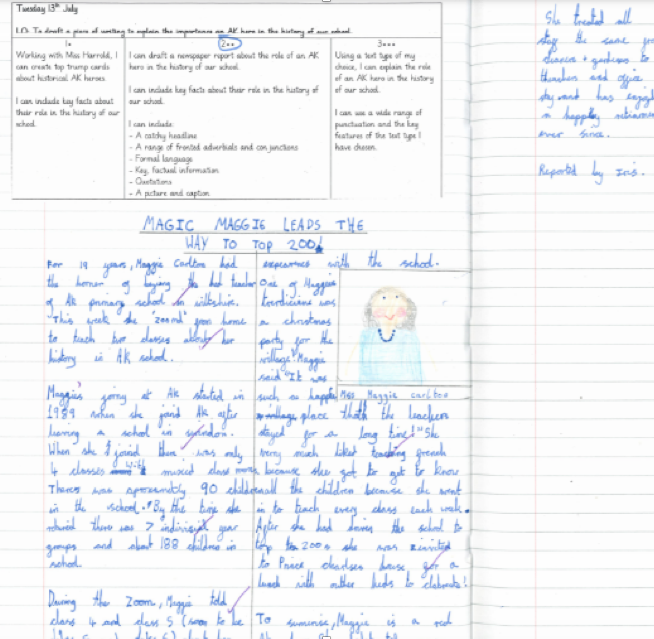 Tuesday 13th July
LO: To draft a piece of writing to explain the importance an AK hero in the history of our school.
1*
Working with Miss Harrold, I
can create top trump cards
about historical AK heroes.
I can include key facts about
their role in the history of our
school.
2**
I can draft a newspaper report about the role of an AK
hero in the history of our school.
I can include key facts about their role in the history of
our school.
I can include:
- A catchy headline
- A range of fronted adverbials and conjunctions
- Formal language
- Key, factual information
- Quotations
- A picture and caption
3***
Using a text type of my
choice, I can explain the role
of an AK hero in the history
of our school.
I can use a wide range of
punctuation and the key
features of the text type I
have chosen.
MAGIC MAGGIE LEADS THE
WAY TO TOP 200!
For 19 years, Maggie Carlton had
the honor of the teacher
of AK primary school in wiltshire.
This week she 'zoomd' from home
to teach two classes about her
history in AK school.
Maggie's at AK started in
1989 when she joind AK after
leaving a school in swindon.
When she joind there was only
4 classes with mixed class
Theres was 90 children
in the school. By the time she
there was 7 year
groups and about 188 children in
school.
During the Zoom, Maggie told
class 4 and class 5 (soon to be
with the school.
One of Maggies
was
a christmas
party for the
village. Maggie
said "It was
such a happy
Mss Maggie carlton
village place thath the teachers
stayed for a long time!" She
very much liked teaching french
because she got to get to know
all the children because she went
in to teach every class each week.
After she had the school to
top 200s she was
to Prince house for a
lunch with outher heds to
To Maggie is a
She treated all
the same
cleaners +
and office
and has
a happy
ever since.
Reported by Iris.